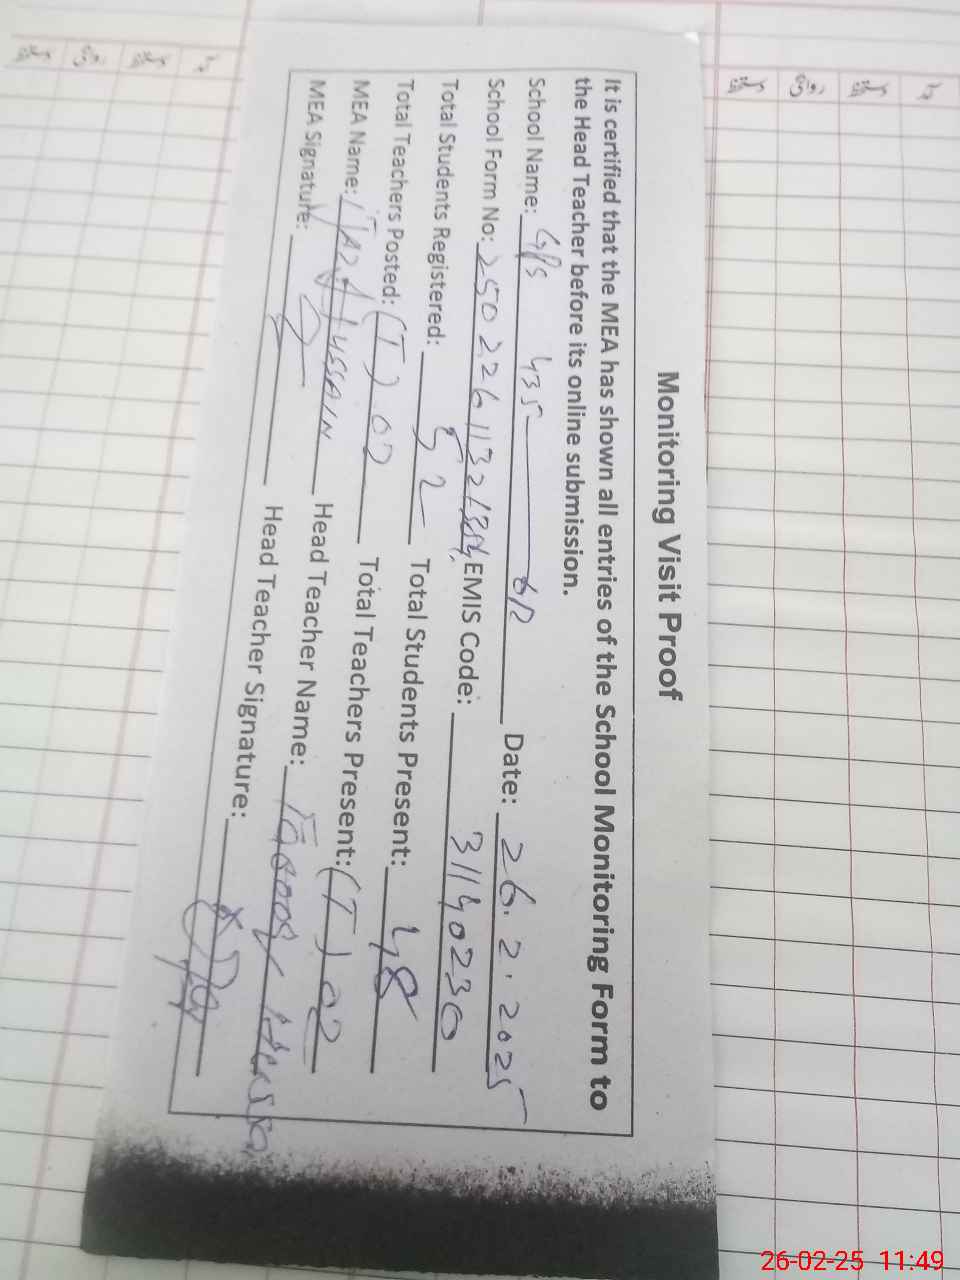 Monitoring Visit Proof
It is certified that the MEA has shown all entries of the School Monitoring Form to
the Head Teacher before its online submission.
School Name: GPS 435 Date: 26.2.2025
School Form No: EMIS Code: 31140230
Total Students Registered: 52 Total Students Present: 48
Total Teachers Posted: (T) 02 Total Teachers Present: (T) 02
MEA Name: HUSSAIN Head Teacher Name:
MEA Signature: Head Teacher Signature:
26-02-25 11:49